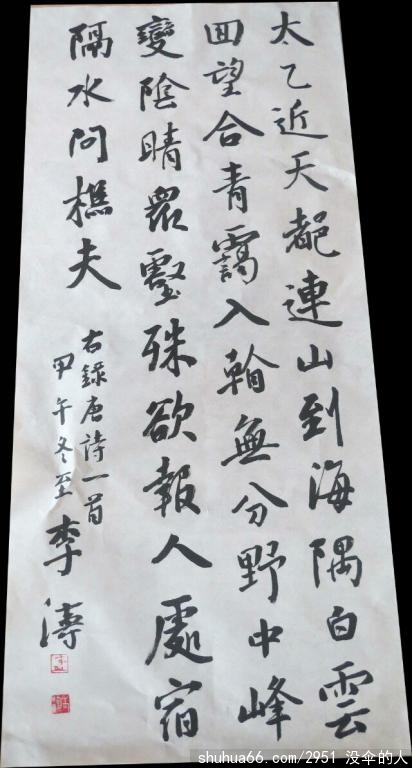 太乙近天都連山到海隅白雲
回望合青靄入無分野中峰
變陰晴眾壑殊欲報人處宿
隔水問樵夫
右錄唐詩一首
甲午冬至 李濤
shuhua66.com/2951 没伞的人